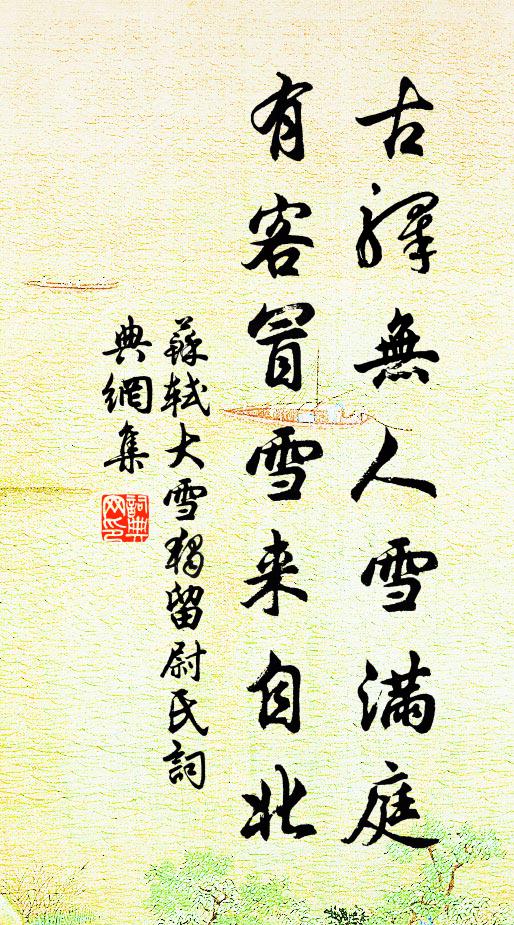 古驛無人雪滿庭
有客冒雪来自北
蘇軾大雪獨留尉氏詞
典網集
詞典
网印